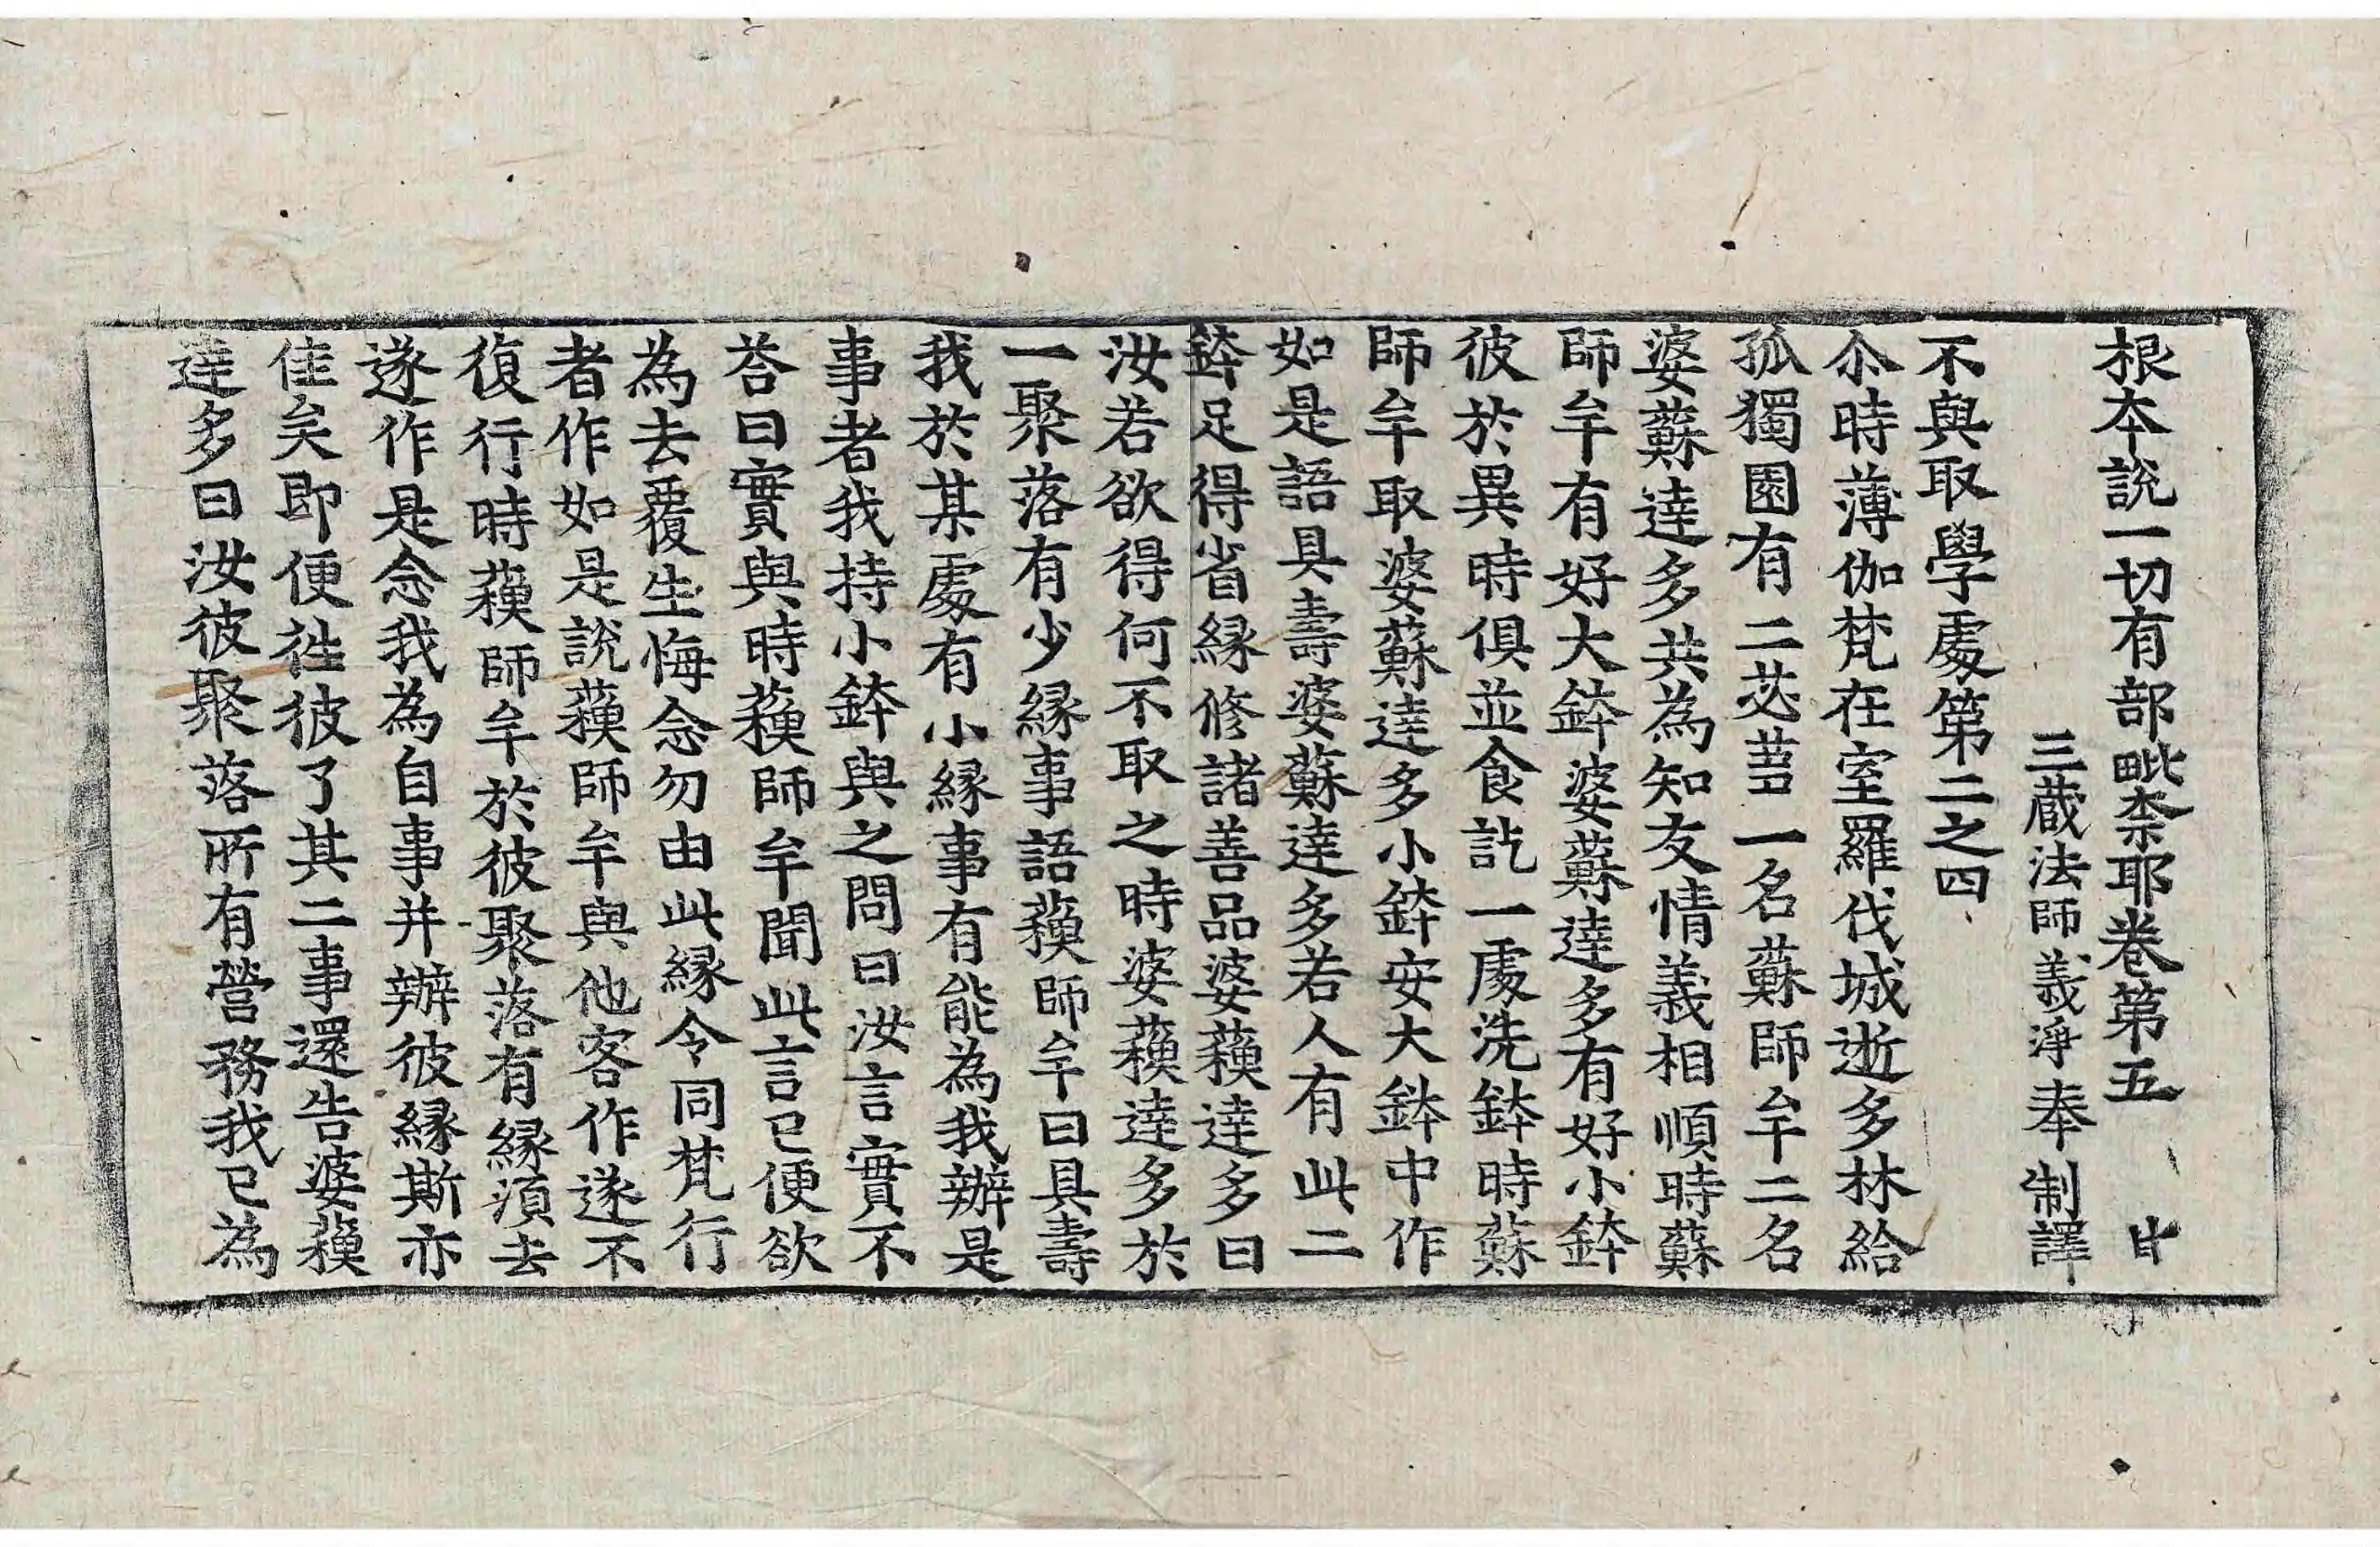 根本說一切有部毗柰耶卷第五
三蔵法師義淨奉　制譯
不與取學處第二之四
尒時薄伽梵在室羅伐城逝多林給
孤獨園有二苾蒭一名蘇師牟二名
婆蘇達多共為知友情義相順時蘇
師牟有好大鉢婆蘇達多有好小鉢
彼於異時俱並食訖一處洗鉢時蘇
師牟取婆蘇達多小鉢安大鉢中作
如是語具壽婆蘇達多若人有此二
鉢足得省縁修諸善品婆蘓達多曰
汝若欲得何不取之時婆蘓達多於
一聚落有少縁事語蘓師牟曰具壽
我於某處有小縁事有能為我辦是
事者我持小鉢與之問曰汝言實不
荅曰實與時蘓師牟聞此言已便欲
為去覆生悔念勿由此縁令同梵行
者作如是說蘓師牟與他客作遂不
復行時蘓師牟於彼聚落有縁湏去
遂作是念我為自事并辦彼縁斯亦
佳矣即便往彼了其二事還告婆蘓
達多曰汝彼聚落所有營務我已為